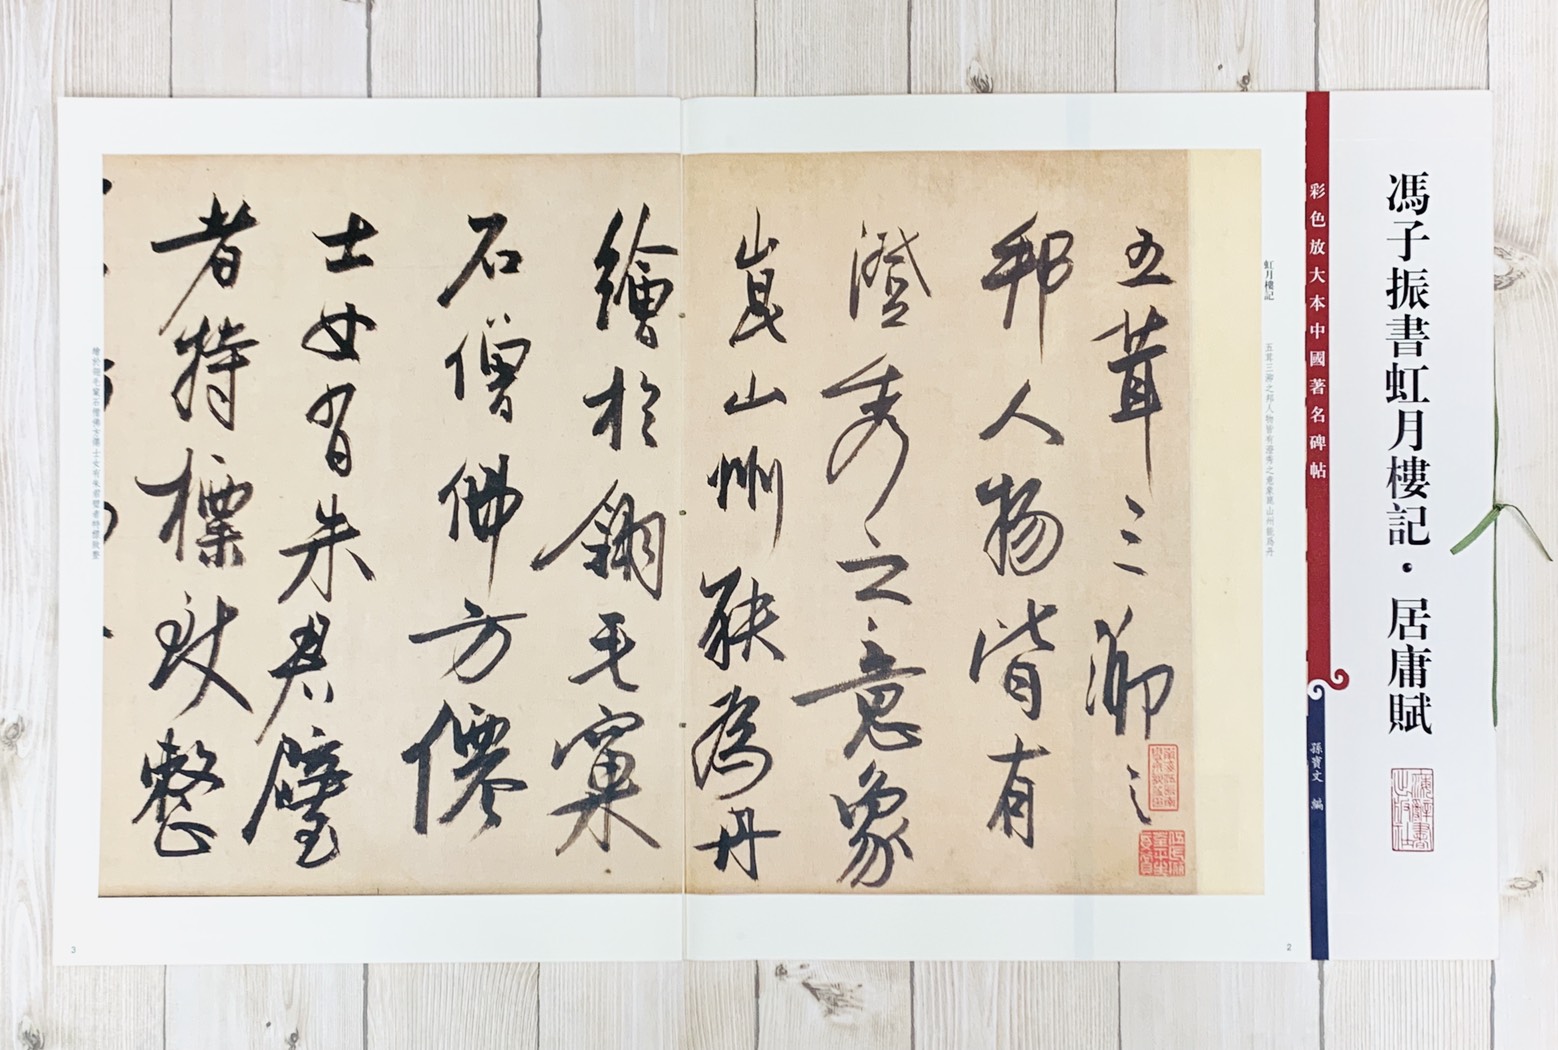 馮子振書虹月樓記・居庸賦
彩色放大本中國著名碑帖
孫寶文 編
虹月樓記
五茸三泖之邦人物皆有澄秀之意象崑山州能為丹
2
五茸三泖之
邦人物皆有
澄秀之意象
崑山州能為丹
繪於銅毛窠
石僧佛方僊
士女有朱君璧
者特標致整
3